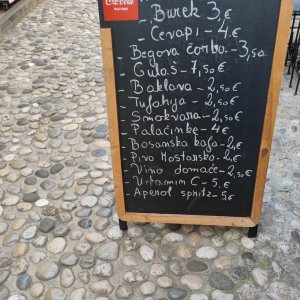 Coca-Cola
- Burek 3,€
- Ćevapi - 4,€
- Begova čorba - 3,50
- Gulaš - 7,50€
- Baklava - 2,50€
- Tufahija - 2,50€
- Smokvara - 2,50€
- Palačinke - 4€
- Bosanska kafa - 2,€
- Pivo Mostarsko - 2,€
- Vino domaće - 2,50€
- Vitamin C - 5,€
- Aperol spritz - 5€